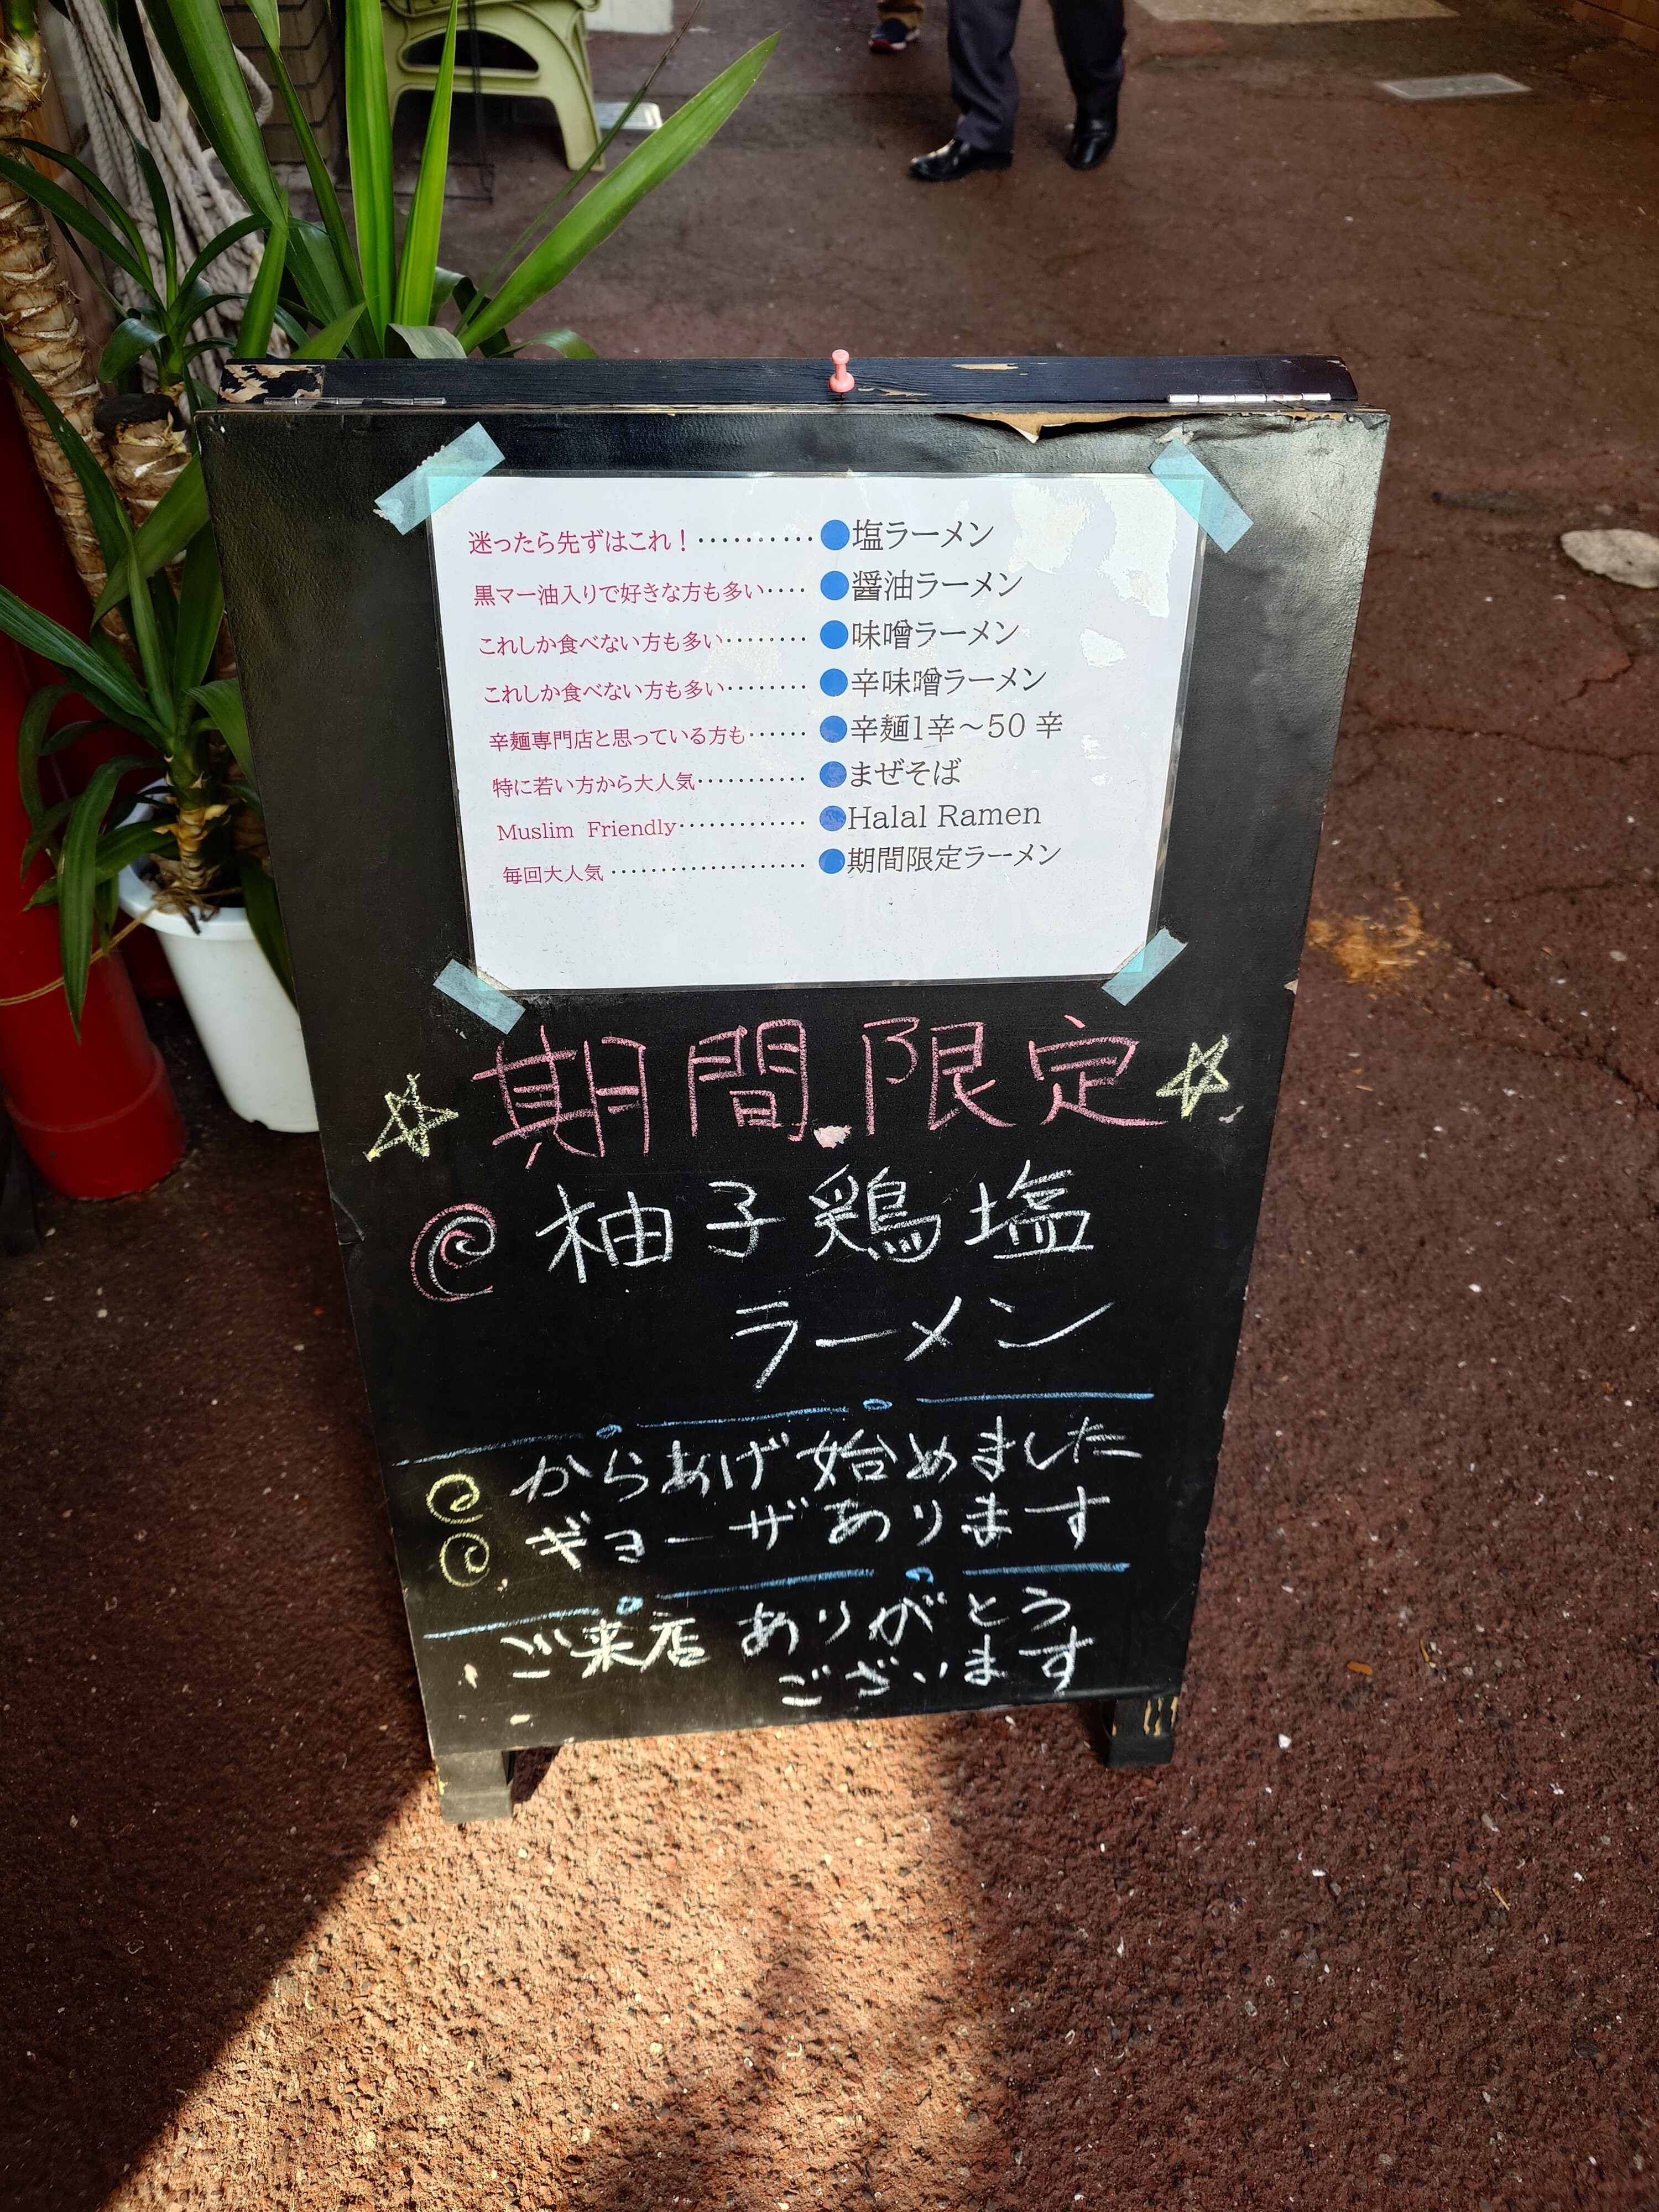 迷ったら先ずはこれ！‥‥‥‥‥●塩ラーメン
黒マー油入りで好きな方も多い‥‥●醤油ラーメン
これしか食べない方も多い‥‥‥‥●味噌ラーメン
これしか食べない方も多い‥‥‥‥●辛味噌ラーメン
辛麺専門店と思っている方も‥‥‥●辛麺1辛～50 辛
特に若い方から大人気‥‥‥‥‥‥●まぜそば
Muslim Friendly‥‥‥‥‥‥‥●Halal Ramen
毎回大人気 ‥‥‥‥‥‥‥‥‥‥●期間限定ラーメン
☆期間限定☆
柚子鶏塩
ラーメン
からあげ始めました
ギョーザあります
ご来店 ありがとう
ございます